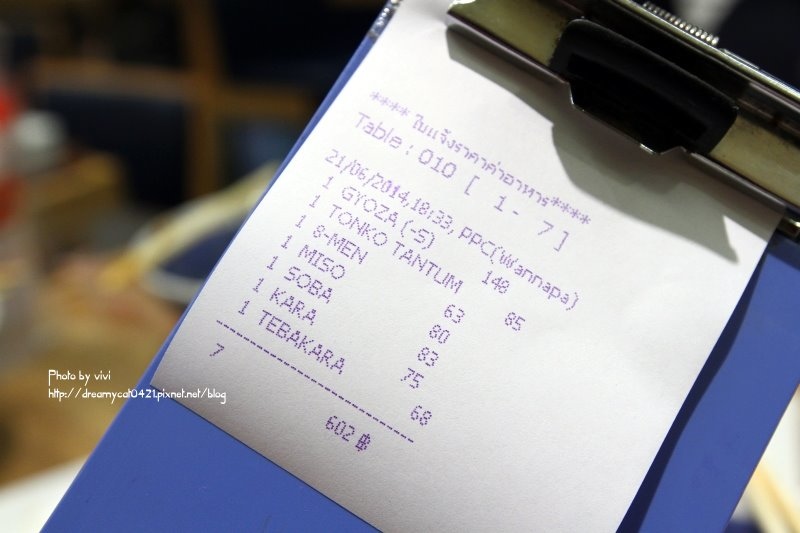 **** ใบแจ้งราคาค่าอาหาร****
Table : 010 [ 1- 7]
21/06/2014,18:33, PPC(Wannapa)
1 GYOZA (-S) 148
1 TONKO TANTUM 85
1 8-MEN 63
1 MISO 80
1 SOBA 83
1 KARA 75
1 TEBAKARA 68
7 602 ฿
Photo by vivi
http://dreamycat0421.pixnet.net/blog